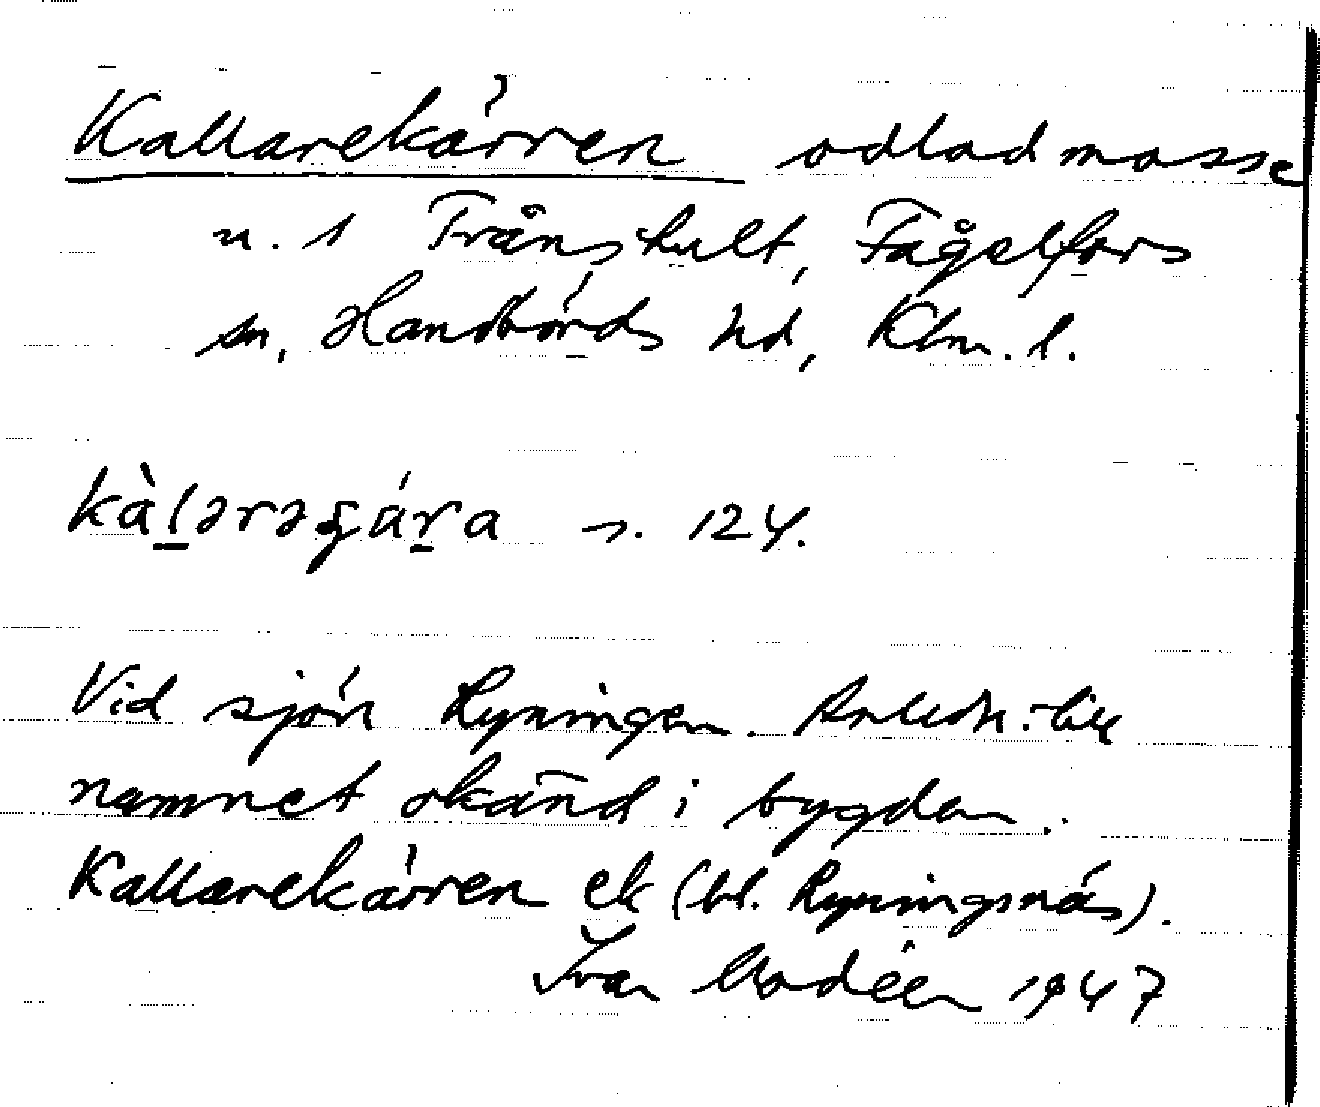 Kallarekärren odlad mosse
u. 1 Trånshult, Fågelfors
sn, Handbörds hd, Klm. l.
kàḻərəgáṟa s. 124.
Vid sjön Ryningen. Anledn. till
namnet okänd i bygden.
Kallarekärren ek (bl. Ryningsnäs).
Ivar Modéer 1947